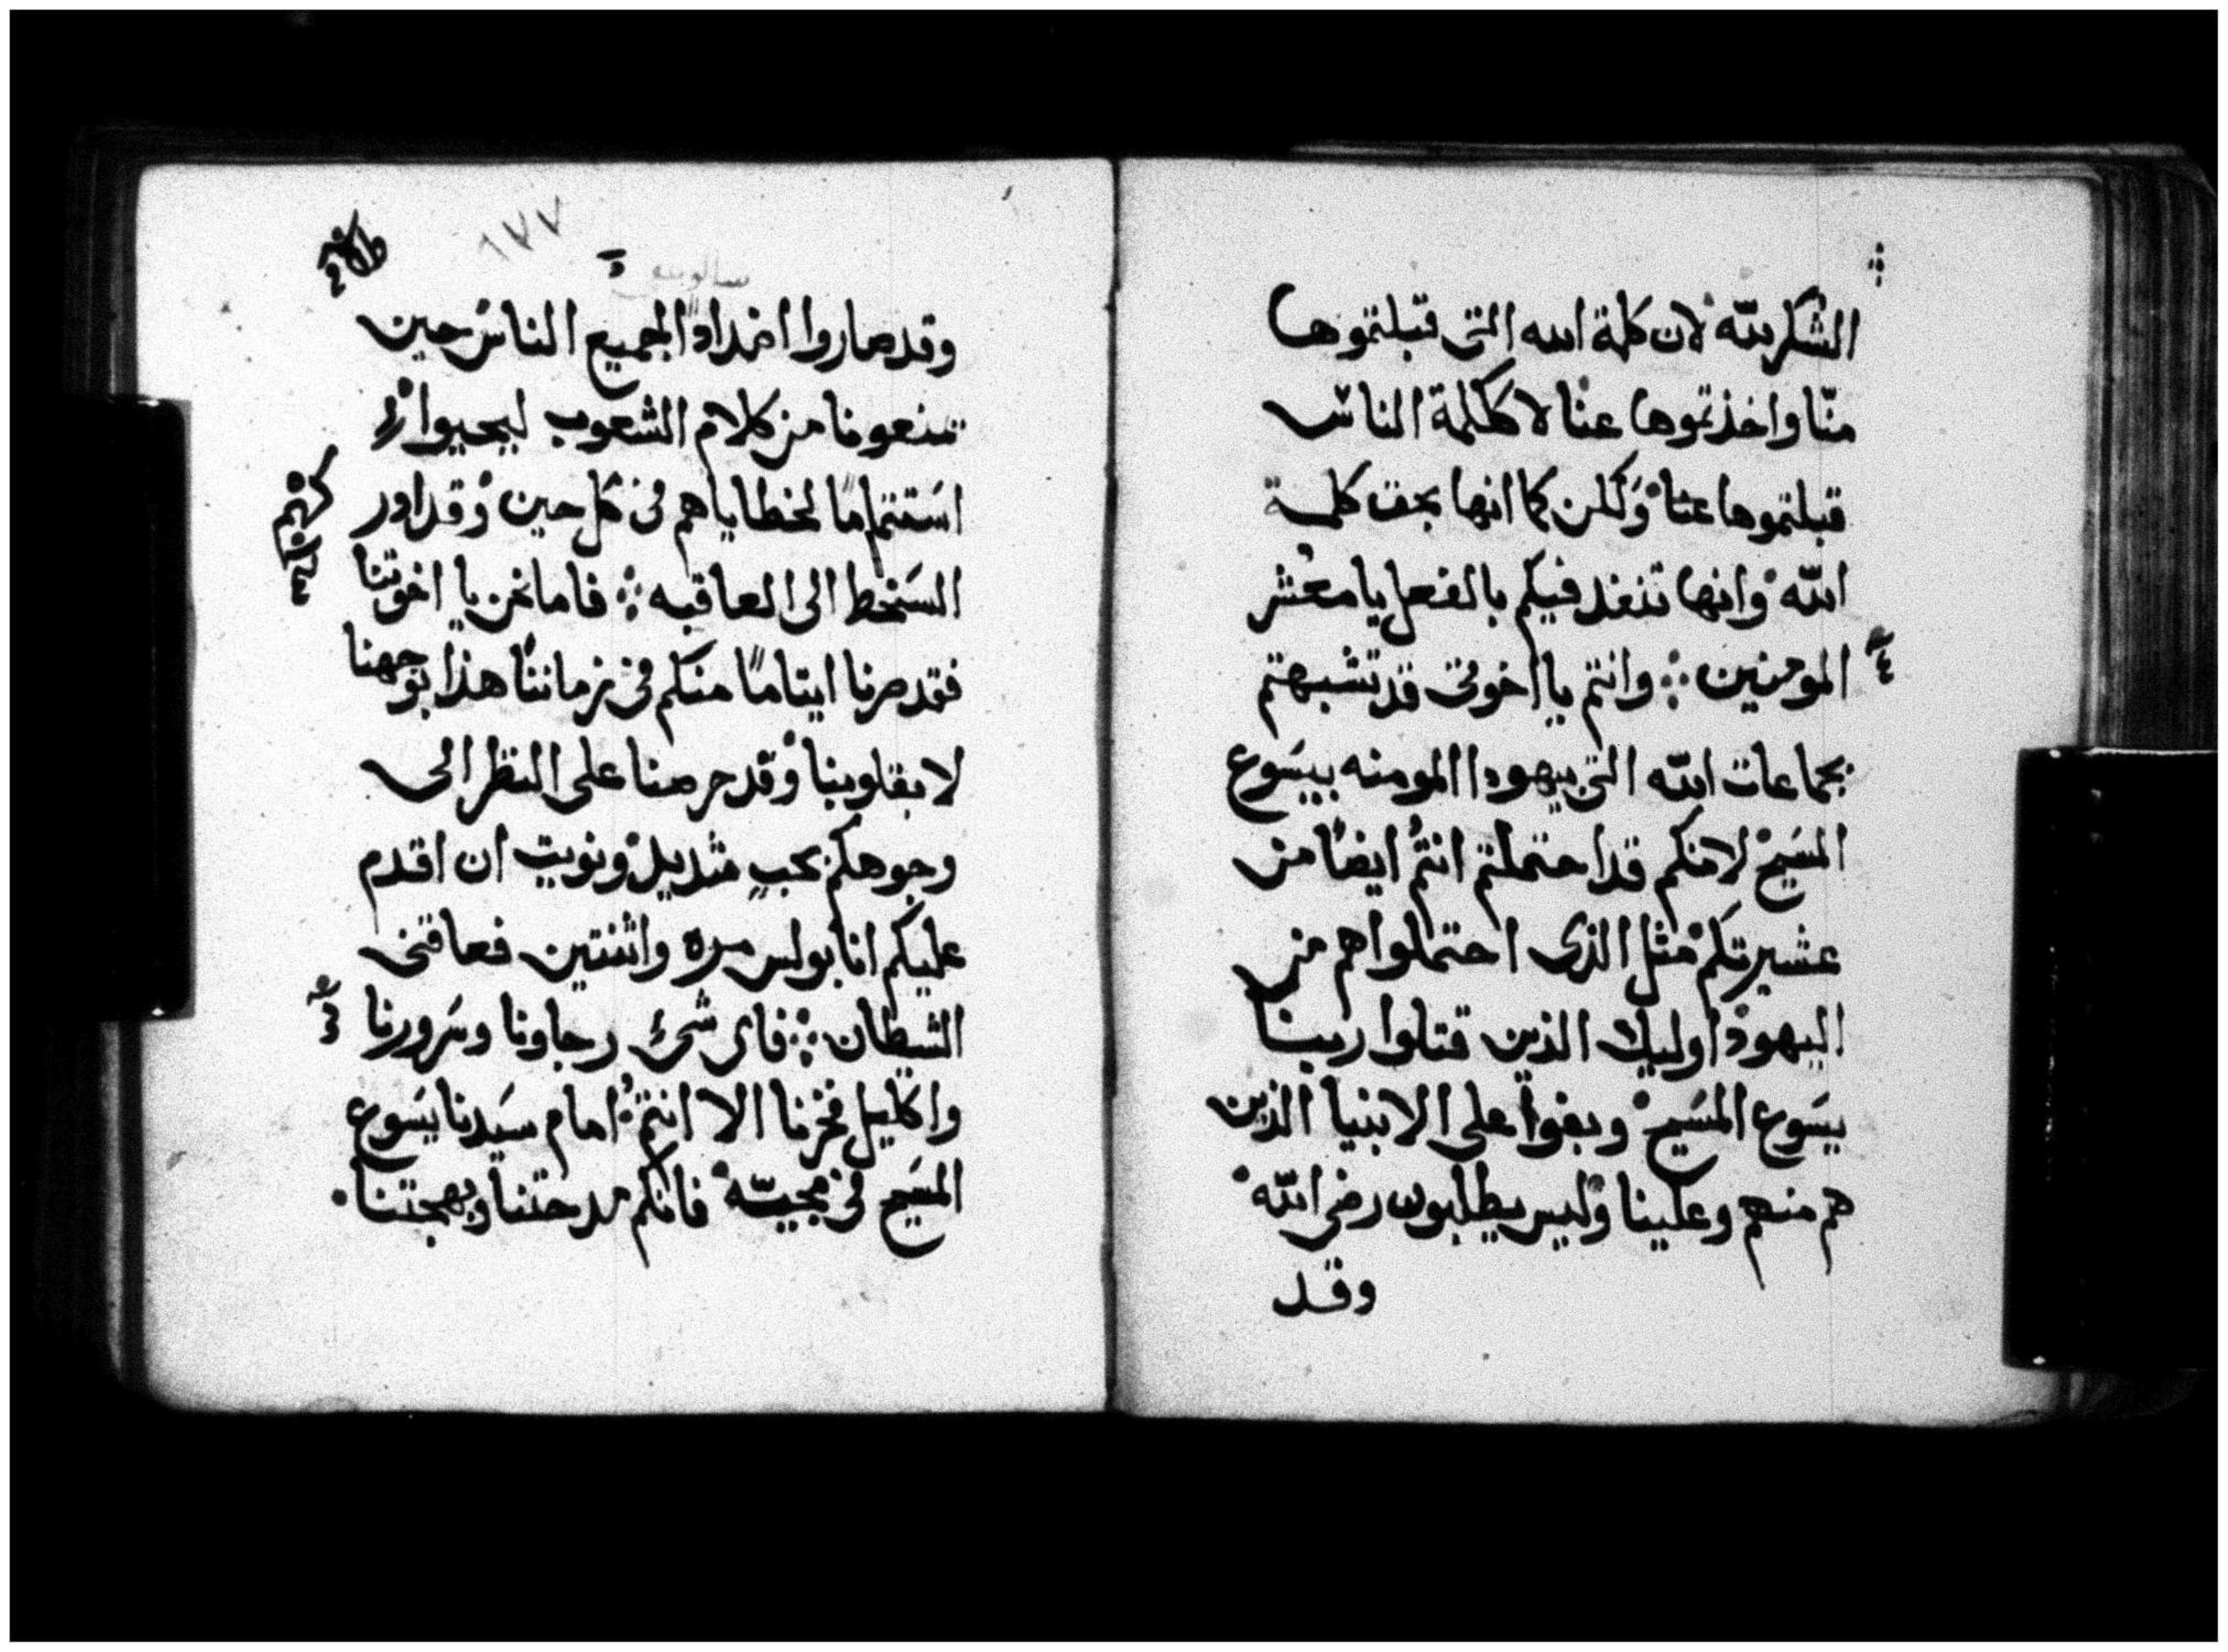 الشكر لله لان كلمة الله التى قبلتموها
منّا واخذتموها عنا لا ككلمة الناس
قبلتموها عنا ولكن كما انها بحق كلمة
الله وانها تنفد فيكم بالفعل يا معشر
المومنين ܀ وانتم يا اخوتى قد تشبهتم
بجماعات الله التى بيهودا المومنه بيسوع
المسيح لانكم قد احتملتم انتم ايضًا من
عشيرتكم مثل الذى احتملوا هم من
اليهود اوليك الذين قتلوا ربنا
يسوع المسيح وبغوا على الانبيا الذين
هم منهم وعلينا وليس يطلبون رضى الله
وقد
١٧٧
وقد صاروا اضدادًا لجميع الناس حين
تمنعونا من كلام الشعوب ليحيوا
استتمامًا لخطاياهم فى كل حين وقد ادر
السخط الى العاقبه ܀ فاما نحن يا اخوتنا
فقد صرنا ايتامًا منكم فى زماننا هذا بوجهنا
لا بقلوبنا وقد حرصنا على النظر الى
وجوهكم بحبٍ شديد ونويت ان اقدم
عليكم انا بولس مره واثنتين فعاقنى
الشيطان ܀ فاى شىء رجاونا وسرورنا
واكليل فخرنا الا انتم امام سيدنا يسوع
المسيح فى مجيّه فانكم مدحتنا وبهجتنا